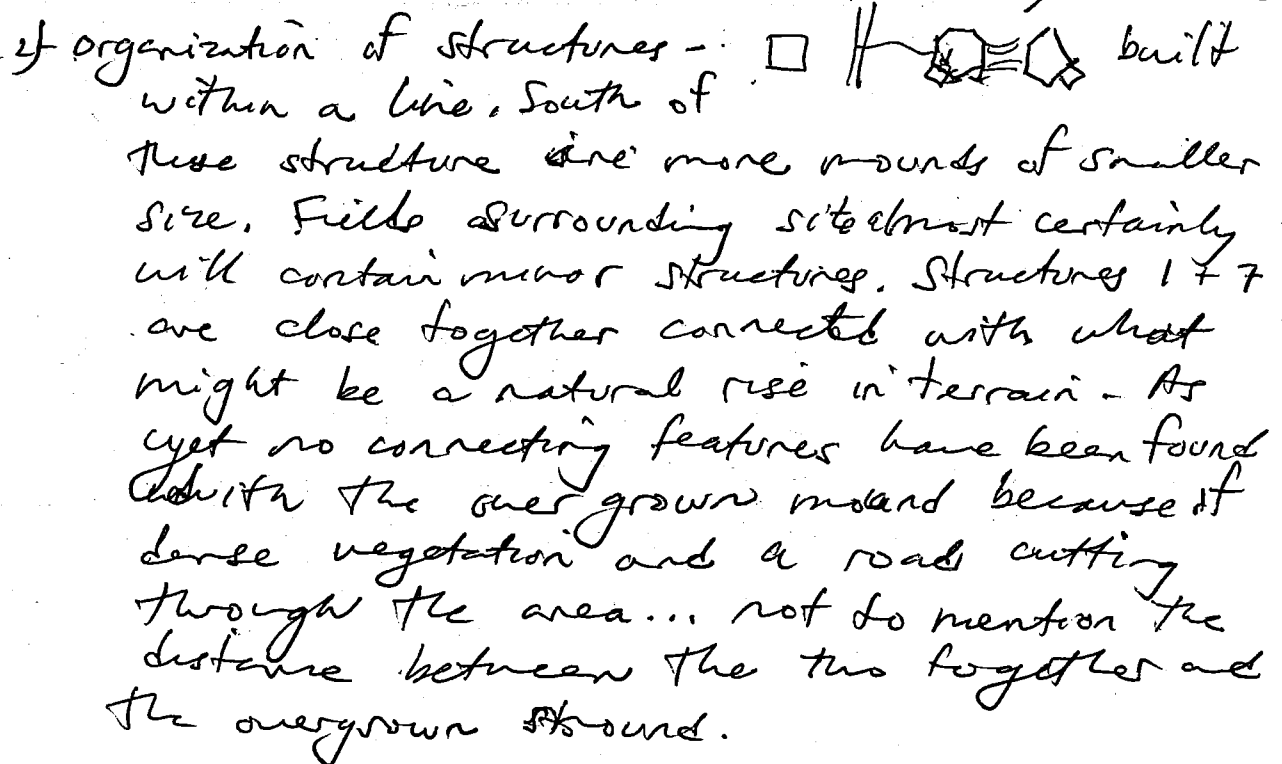 2) organization of structures - built
within a line. South of
these structure are more mounds of smaller
size. Fields surrounding site almost certainly
will contain minor structures. Structures 1 + 7
are close together connected with what
might be a natural rise in terrain - As
yet no connecting features have been found
with the over grown mound because of
dense vegetation and a road cutting
through the area... not to mention the
distance between the two together and
the overgrown mound.